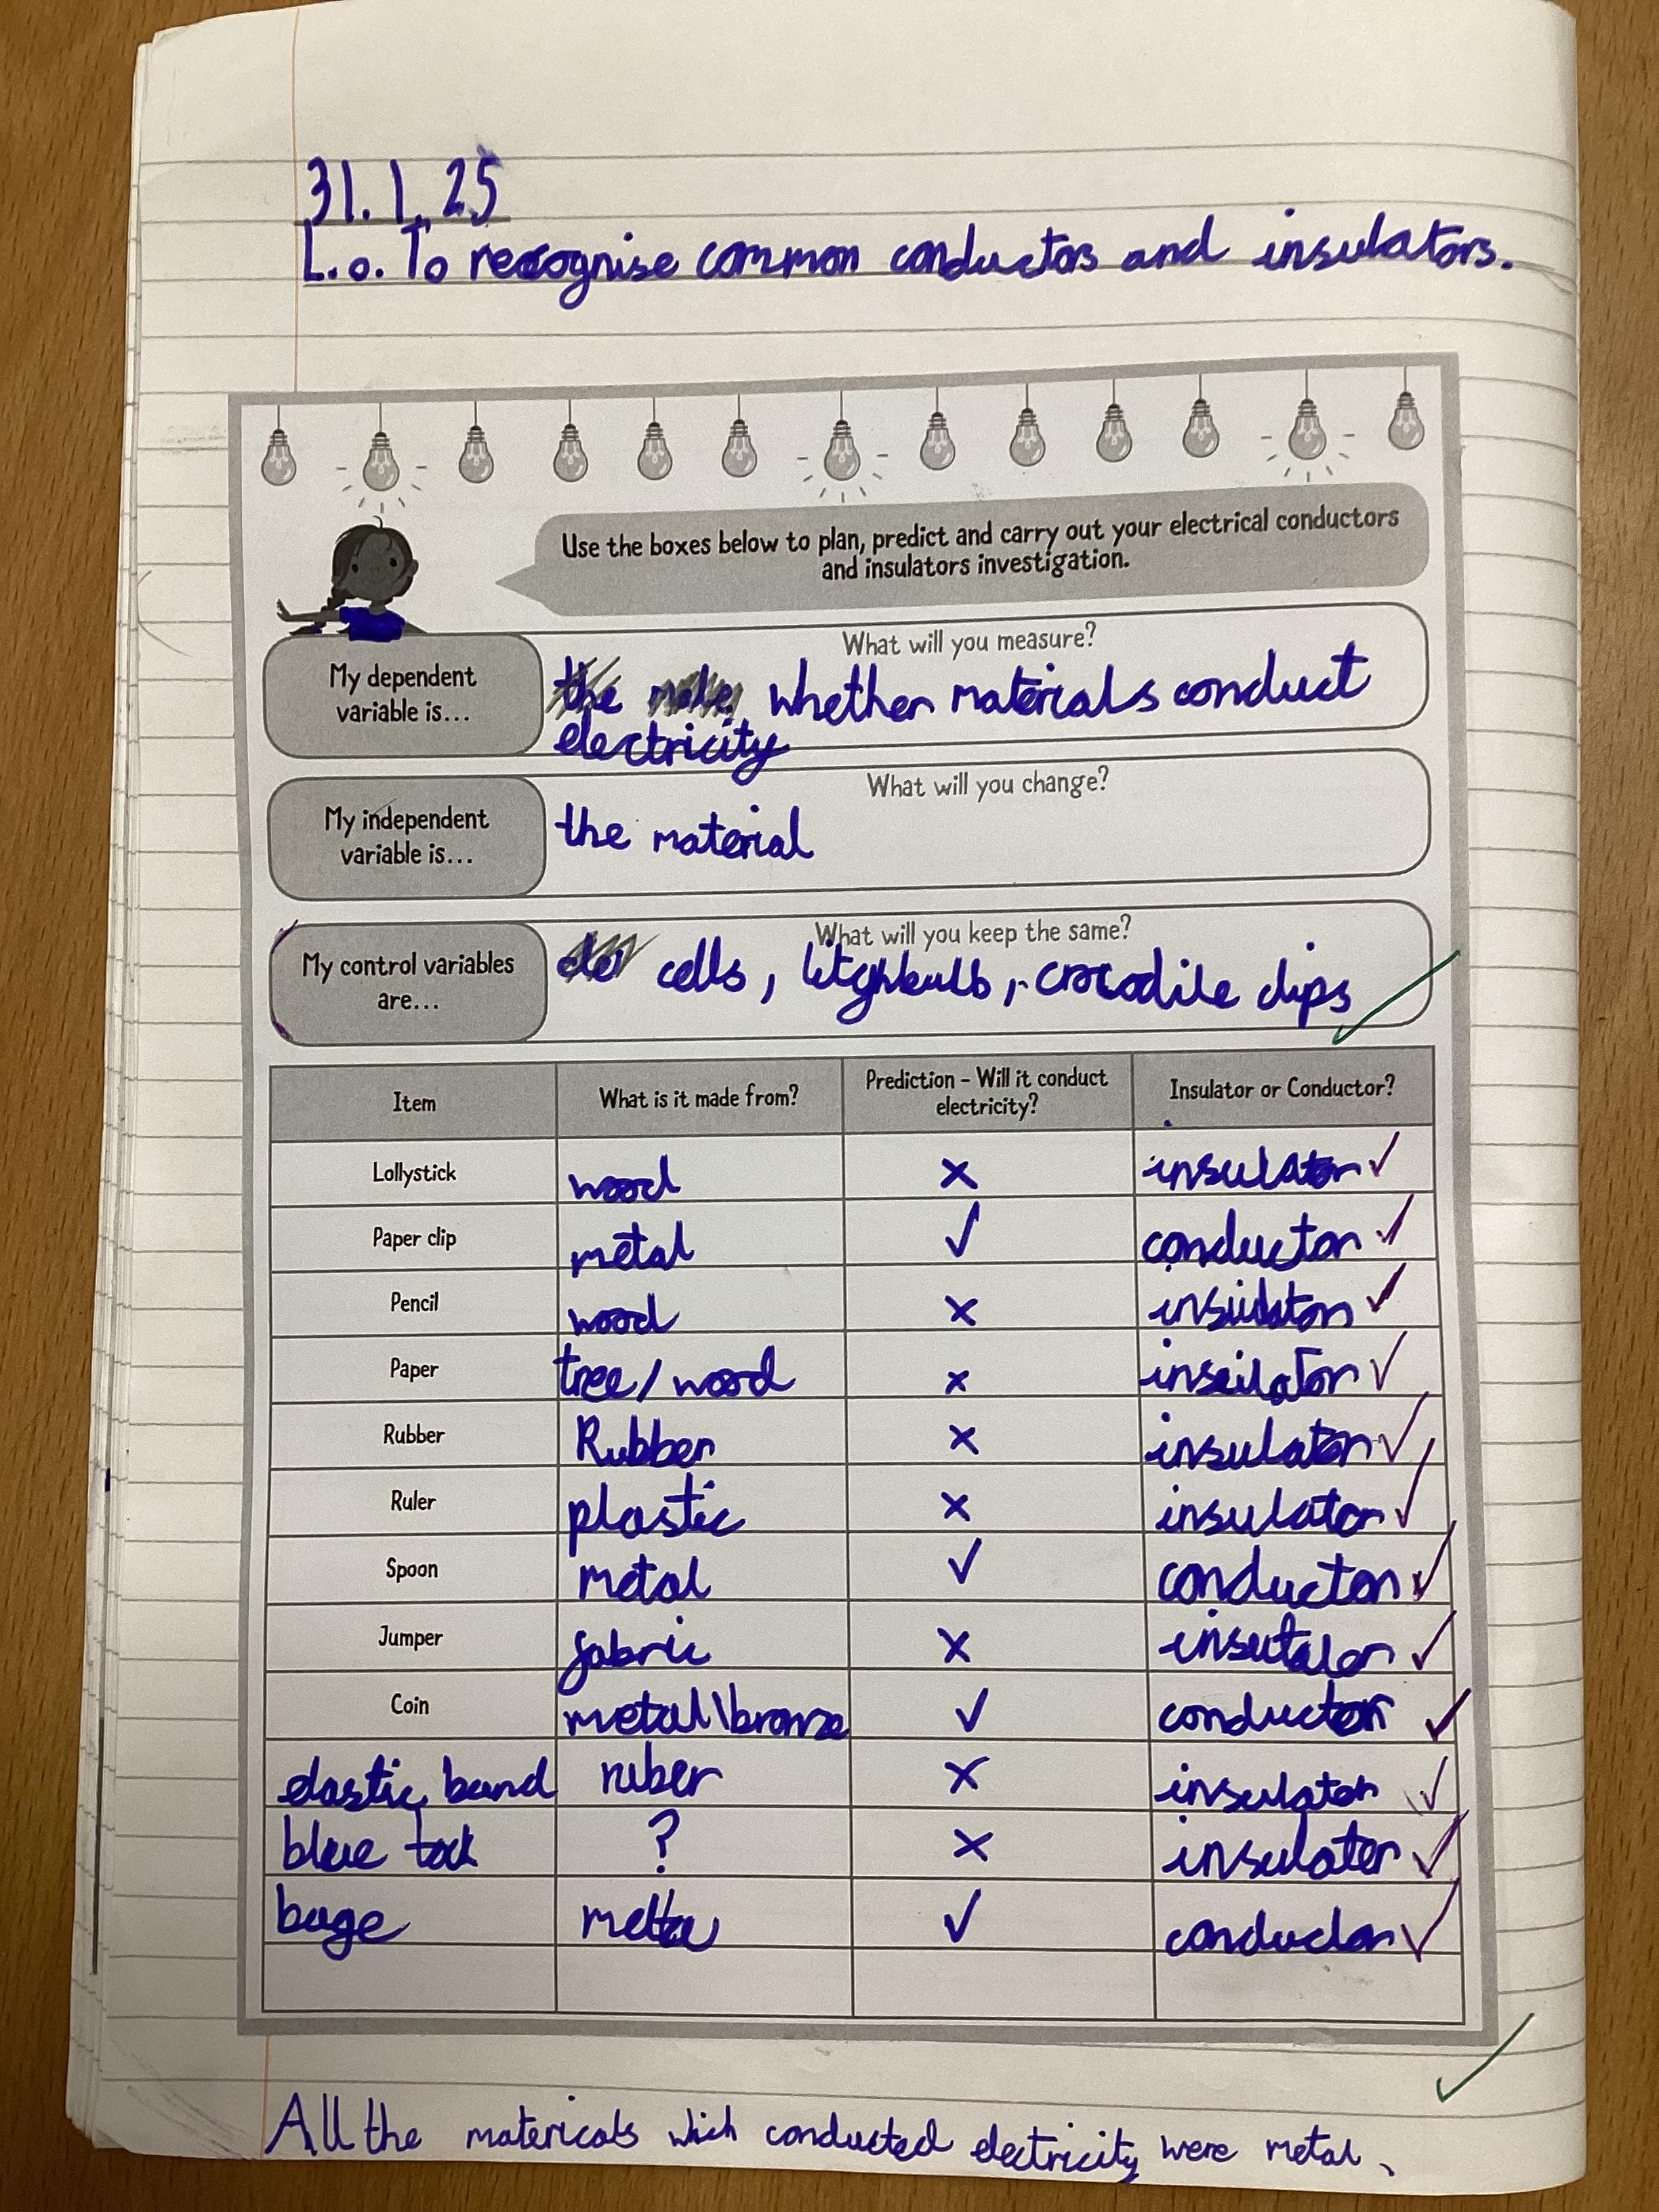 31.1.25
L.o. To recognise common conductors and insulators.
Use the boxes below to plan, predict and carry out your electrical conductors
and insulators investigation.
My dependent
variable is...
What will you measure?
the whether materials conduct
electricity
My independent
variable is...
What will you change?
the material
My control variables
are...
What will you keep the same?
cells, crocodile clips
Item What is it made from? Prediction - Will it conduct electricity? Insulator or Conductor?
Lollystick wood x insulator ✓
Paper clip metal ✓ conductor ✓
Pencil wood x insulator ✓
Paper tree/wood x insulator ✓
Rubber Rubber x insulator ✓
Ruler plastic x insulator ✓
Spoon metal ✓ conductor ✓
Jumper fabric x insutalor ✓
Coin metal\bronze ✓ conductor ✓
elastic band ruber x insulator ✓
blue tack ? x insulator ✓
bage ✓ conductor ✓
All the matericals which conducted electricity were metal.